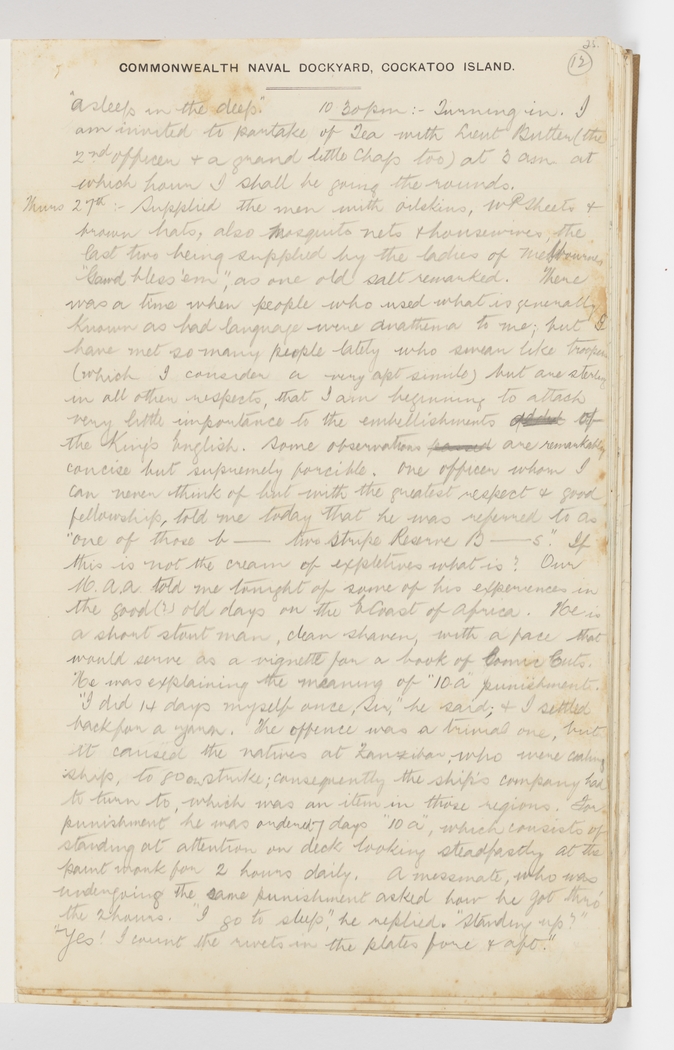 25.
12
COMMONWEALTH NAVAL DOCKYARD, COCKATOO ISLAND.
"asleep in the deep". 10 30 pm :- Turning in. I
am invited to partake of Tea with Lieut Butler (the
2nd officer & a grand little chap too) at 3 am at
which hour I shall be going the rounds.
Thurs 27th :- Supplied the men with oilskins, WP Sheets &
brown hats, also mosquito nets & housewives, the
last two being supplied by the ladies of Melbourne,
"Gawd bless 'em", as one old salt remarked. There
was a time when people who used what is generally
known as bad language were anathema to me; but I
have met so many people lately who swear like troopers
(which I consider a very apt simile) but are sterling
in all other respects, that I am beginning to attach
very little importance to the embellishments of
the King's English. Some observations are remarkably
concise but supremely forcible. One officer whom I
can never think of but with the greatest respect & good
fellowship, told me today that he was referred to as
"one of those b—— two stripe Reserve B——s". If
this is not the cream of expletives what is? Our
M.A.A. told me tonight of some of his experiences in
the good(?) old days on the E Coast of Africa. He is
a short stout man, clean shaven, with a face that
would serve as a vignette for a book of Comic Cuts.
He was explaining the meaning of "10 a" punishments.
"I did 14 days myself once, Sir," he said; & I settled
back for a yarn. The offence was a trivial one, but
it caused the natives at Zanzibar, who were coaling
ship, to go on strike; consequently the ship's company had
to turn to, which was an item in those regions. For
punishment he was ordered 7 days "10 a", which consists of
standing at attention on deck looking steadfastly at the
paint work for 2 hours daily. A messmate, who was
undergoing the same punishment asked how he got thro'
the 2 hours. "I go to sleep", he replied. "Standing up?"
"Yes! I count the rivets in the plates fore & aft."